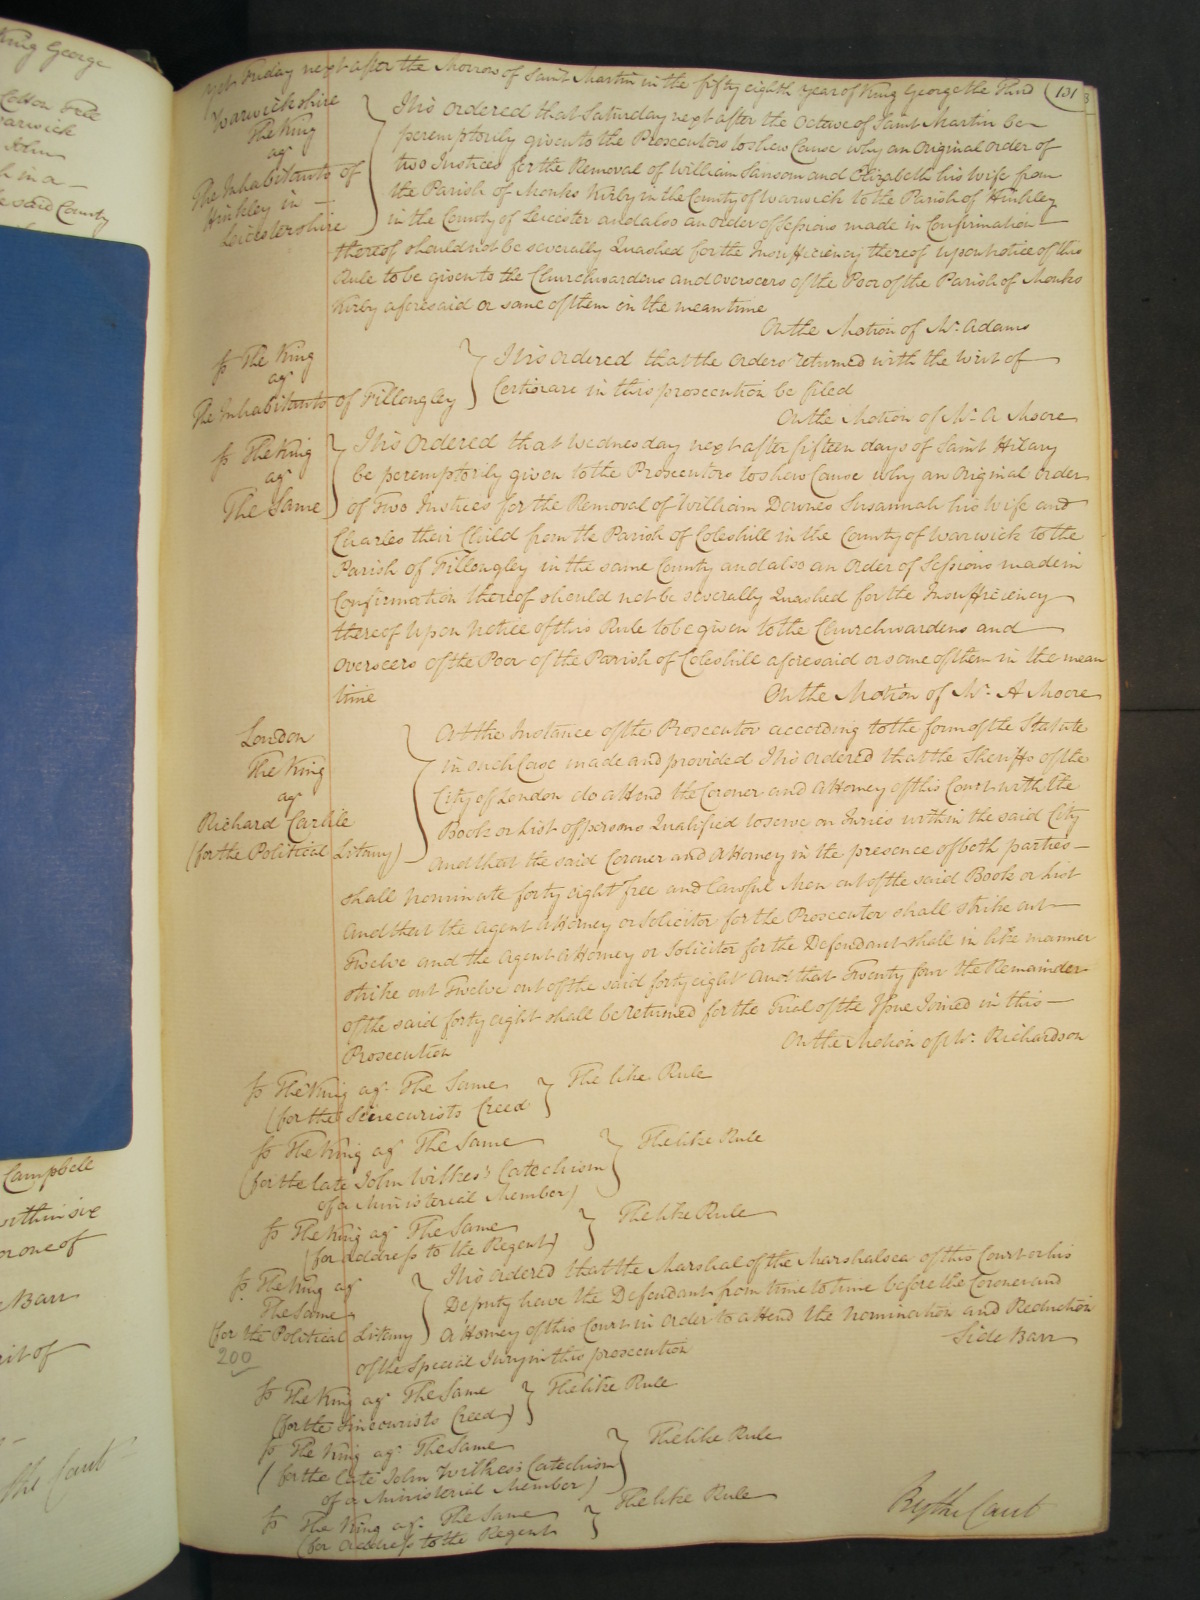 King George
Cotton
Warwick
John
in a
said County
Campbell
within six
or one of
Barr
rit of
the Court
131
yet Friday next after the Morrow of Saint Martin in the fifty eighth Year of King George the Third
Warwickshire
The King
agt
The Inhabitants of
Hinkley in
Leicestershire
It is ordered that Saturday next after the Octave of Saint Martin be
peremptorily given to the Prosecutors to shew Cause why an Original order of
two Justices for the Removal of William Sansom and Elizabeth his Wife from
the Parish of Monks Kirby in the County of Warwick to the Parish of Hinkley
in the County of Leicester and also an order of Sessions made in Confirmation
thereof should not be severally Quashed for the Insufficiency thereof upon notice of this
Rule to be given to the Churchwardens and overseers of the Poor of the Parish of Monks
Kirby aforesaid or some of them in the mean time
On the Motion of Mr. Adams
So The King
agt
The Inhabitants of Fillongley
It is ordered that the orders returned with the writ of
Certiorare in this prosecution be filed
On the Motion of Mr. A Moore
So The King
agt
The Same
It is Ordered that Wednesday next after fifteen days of Saint Hilary
be peremptorily given to the Prosecutors to shew Cause why an Original order
of Two Justices for the Removal of William Downes Susannah his Wife and
Charles their Child from the Parish of Coleshill in the County of Warwick to the
Parish of Fillongley in the same County and also an order of Sessions made in
Confirmation thereof should not be severally Quashed for the Insufficiency
thereof Upon Notice of this Rule to be given to the Churchwardens and
Overseers of the Poor of the Parish of Coleshill aforesaid or some of them in the mean
time
On the Motion of Mr. A Moore
London
The King
agt
Richard Carlile
(for the Political Litany)
At the Instance of the Prosecutor according to the form of the Statute
in such Case made and provided It is ordered that the Sheriffs of the
City of London do attend the Coroner and Attorney of this Court with the
Book or List of persons Qualified to serve on Juries within the said City
And that the said Coroner and Attorney in the presence of both parties
shall nominate forty eight free and lawful Men out of the said Book or List
And that the Agent Attorney or Solicitor for the Prosecutor shall strike out
Twelve and the Agent Attorney or Solicitor for the Defendant shall in like manner
strike out Twelve out of the said forty eight And that Twenty four the Remainder
of the said forty eight shall be returned for the Trial of the Issue Joined in this
Prosecution
On the Motion of Mr. Richardson
So The King agt The Same
(for the Sinecurists Creed
The like Rule
So The King agt The Same
(for the late John Wilkes's Catechism
of a Ministerial Member)
The like Rule
So The King agt The Same
(for address to the Regent)
The like Rule
So The King agt
The Same
(for the Political Litany
200
It is ordered that the Marshal of the Marshalsea of this Court or his
Deputy have the Defendant from time to time before the Coroner and
Attorney of this Court in order to attend the Nomination and Reduction
of the Special Jury in this prosecution
Side Barr
So The King agt The Same
(for the Sinecurists Creed)
The like Rule
So The King agt The Same
(for the late John Wilkes's Catechism
of a Ministerial Member)
The like Rule
So The King agt The Same
(for Address to the Regent
The like Rule
By the Court